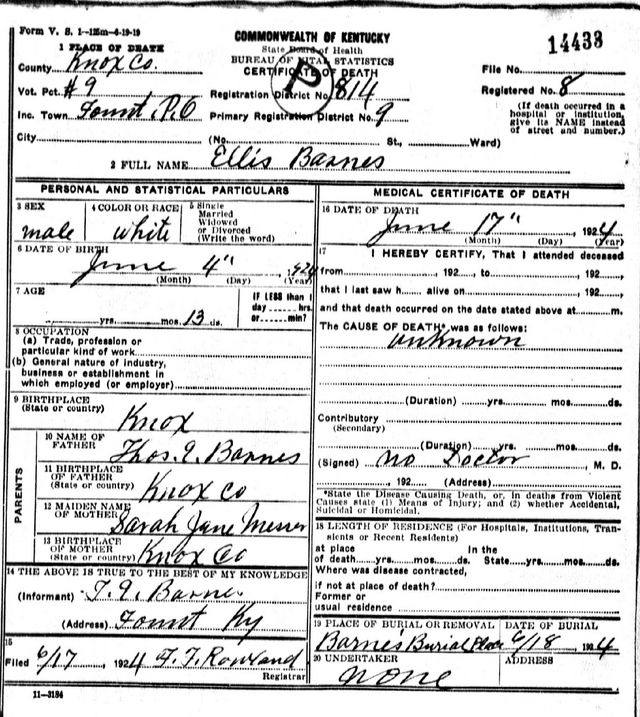 Form V. S. 1--125m-4-19-19
COMMONWEALTH OF KENTUCKY
State Board of Health
BUREAU OF VITAL STATISTICS
CERTIFICATE OF DEATH
14433
1 PLACE OF DEATH
County Knox Co.
File No.
Vot. Pct. #9
Registration District No. 814
Registered No. 8
Inc. Town Fount, P.O
Primary Registration District No. 9
(If death occurred in a hospital or institution, give its NAME instead of street and number.)
City (No. St., Ward)
2 FULL NAME Ellis Barnes
PERSONAL AND STATISTICAL PARTICULARS
3 SEX male
4 COLOR OR RACE white
5 Single Married Widowed or Divorced (Write the word)
6 DATE OF BIRTH June 4" 1924
(Month) (Day) (Year)
7 AGE yrs. mos. 13 ds.
IF LESS than 1 day hrs. or min?
8 OCCUPATION
(a) Trade, profession or particular kind of work
(b) General nature of industry, business or establishment in which employed (or employer)
9 BIRTHPLACE (State or country) Knox
PARENTS
10 NAME OF FATHER Thos. J. Barnes
11 BIRTHPLACE OF FATHER (State or country) Knox Co
12 MAIDEN NAME OF MOTHER Sarah Jane Messer
13 BIRTHPLACE OF MOTHER (State or country) Knox Co
14 THE ABOVE IS TRUE TO THE BEST OF MY KNOWLEDGE
(Informant) T. J. Barnes
(Address) Fount Ky
15 Filed 6/17, 1924 F. F. Rowland
Registrar
11-3184
MEDICAL CERTIFICATE OF DEATH
16 DATE OF DEATH June 17", 1924
(Month) (Day) (Year)
17 I HEREBY CERTIFY, That I attended deceased
from, 192, to, 192,
that I last saw h alive on, 192,
and that death occurred on the date stated above at m.
The CAUSE OF DEATH* was as follows:
unknown
(Duration) yrs. mos. ds.
Contributory
(Secondary)
(Duration) yrs. mos. ds.
(Signed) no Doctor M. D.
, 192 (Address)
*State the Disease Causing Death, or, in deaths from Violent Causes state (1) Means of Injury; and (2) whether Accidental, Suicidal or Homicidal.
18 LENGTH OF RESIDENCE (For Hospitals, Institutions, Transients or Recent Residents)
at place of death yrs. mos. ds. In the State yrs. mos. ds.
Where was disease contracted,
if not at place of death?
Former or usual residence
19 PLACE OF BURIAL OR REMOVAL Barne's Burial Place
DATE OF BURIAL 6/18, 1924
20 UNDERTAKER none
ADDRESS